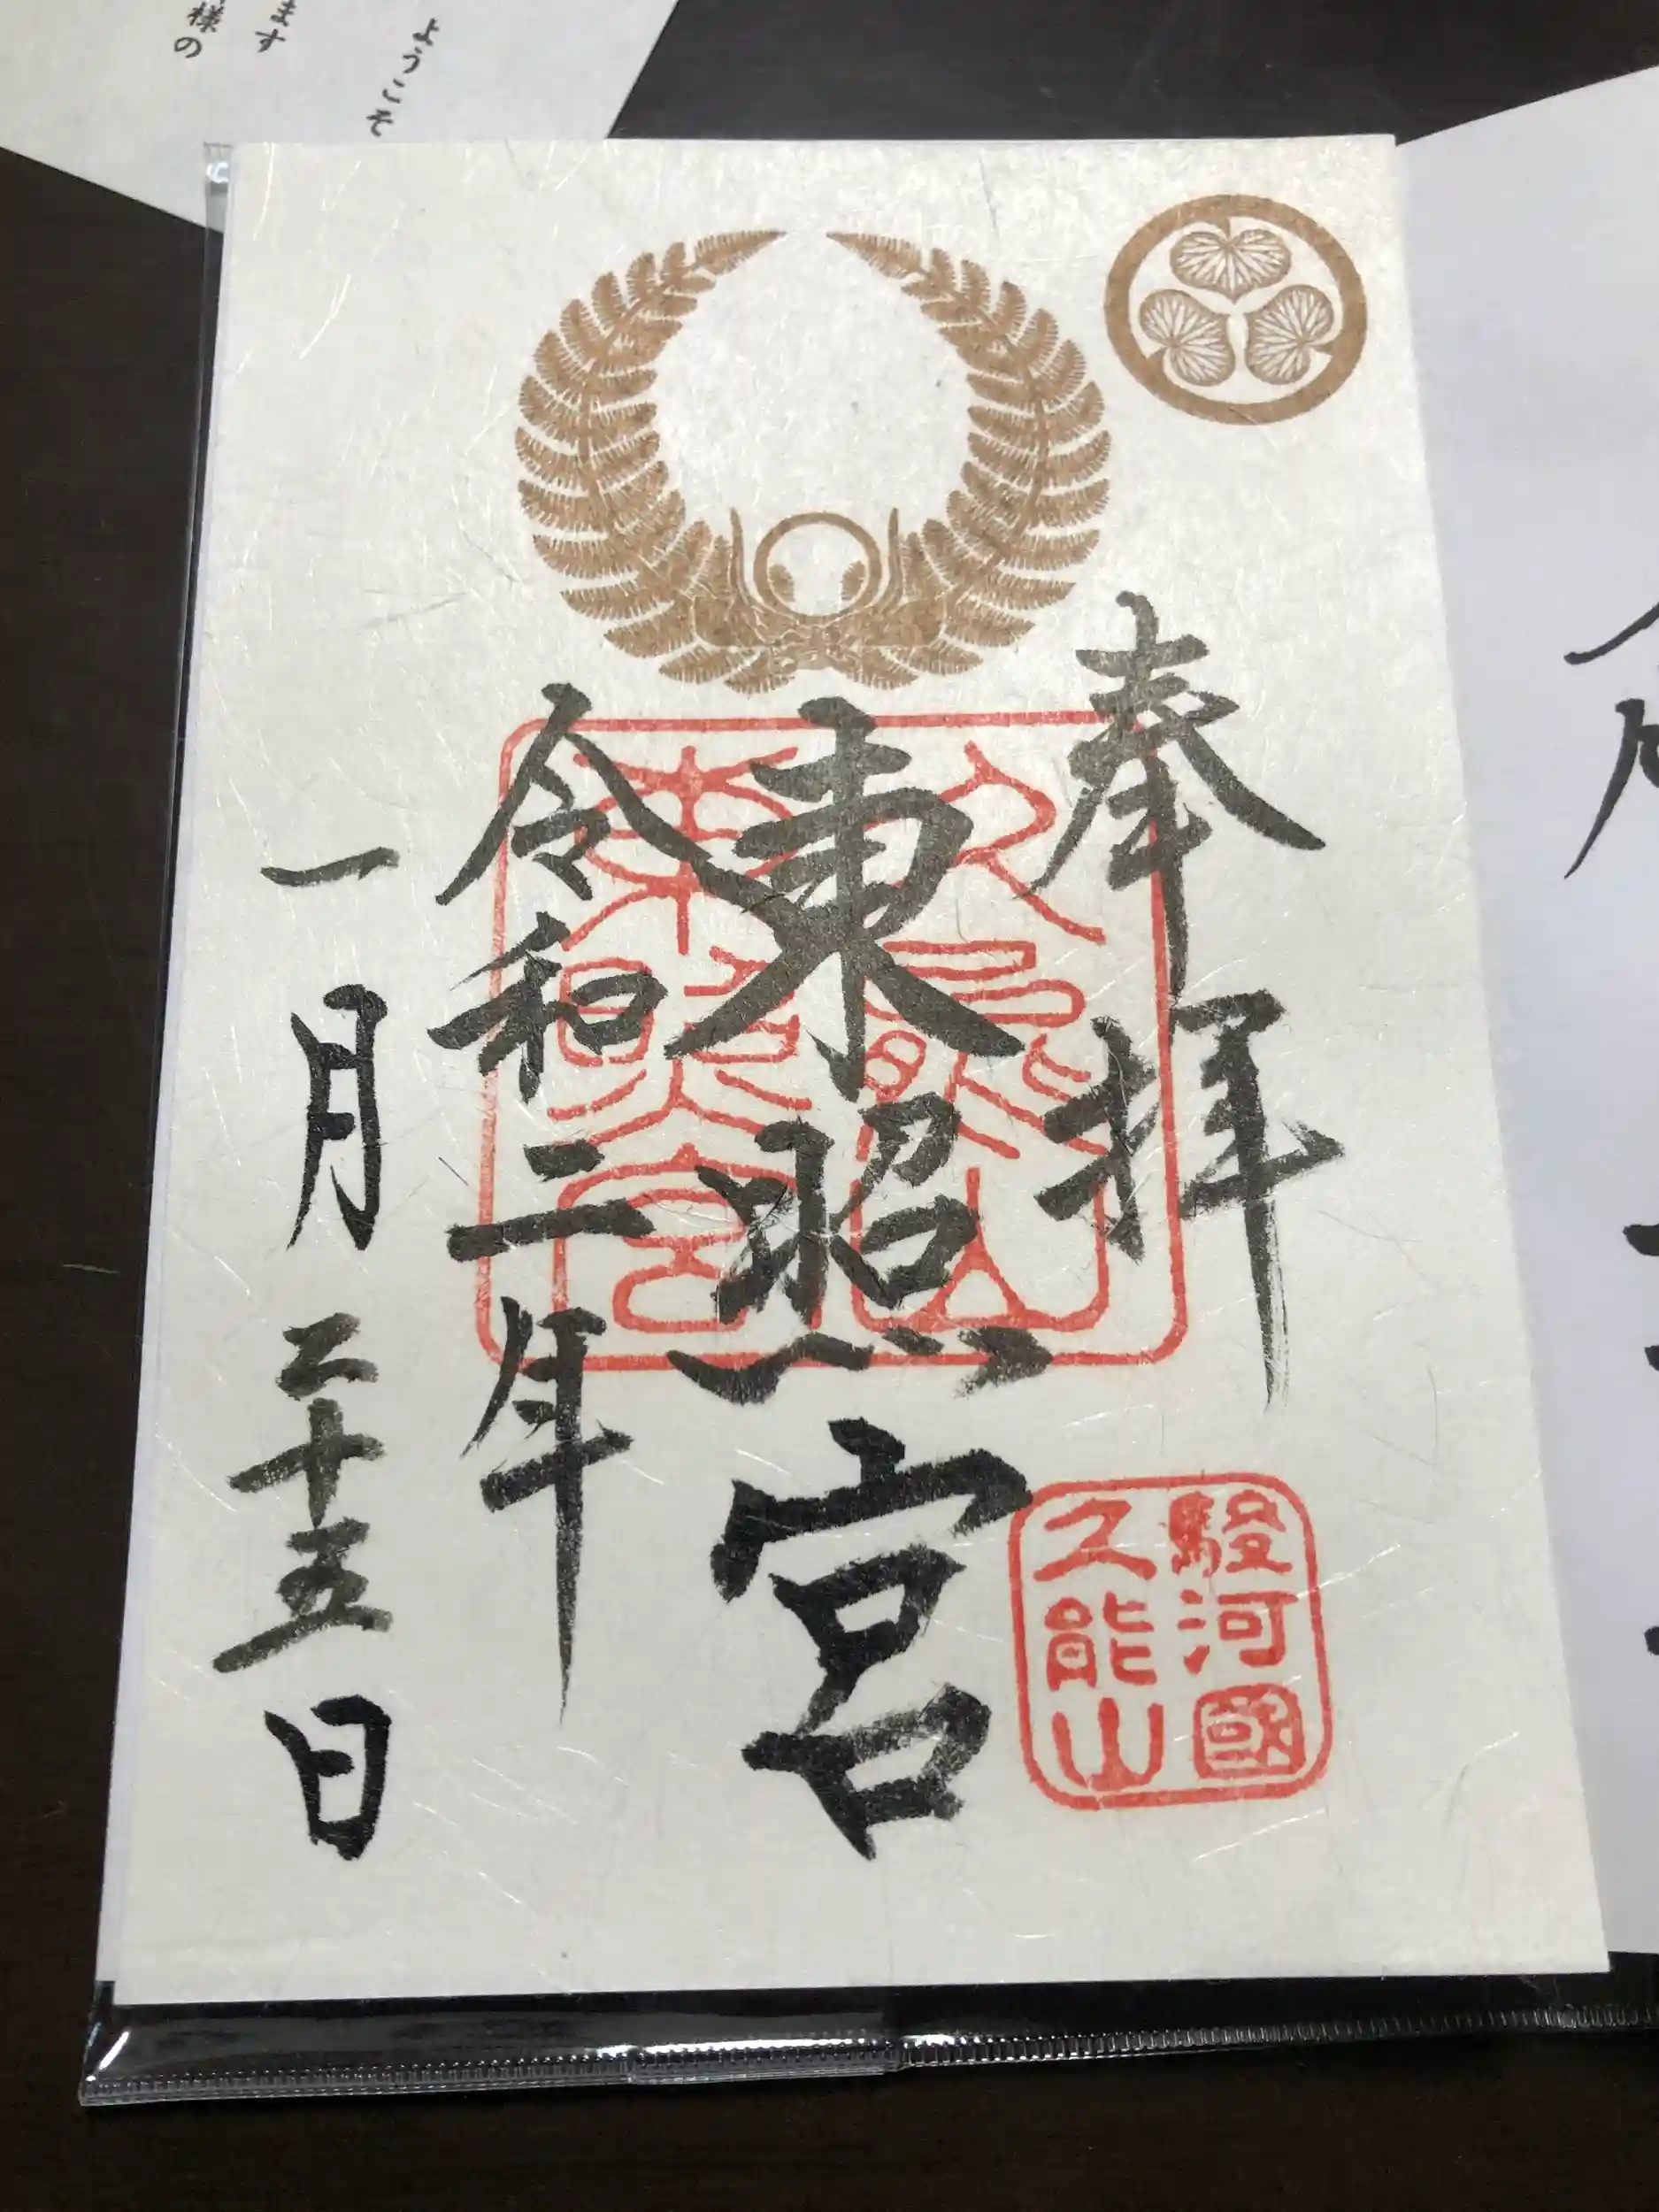 ようこそ
ます
様の
奉拝
東照宮
令和二年
一月二十五日
久能山
東照宮
駿河國
久能山